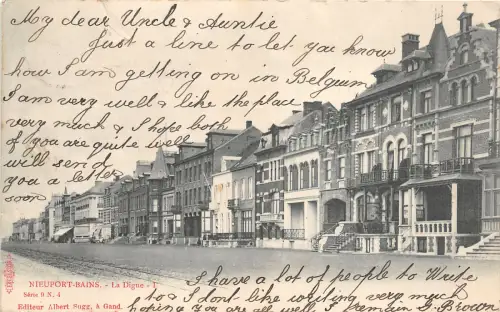 My dear Uncle & Auntie
Just a line to let you know
how I am getting on in Belgium
I am very well & like the place
very much & I hope both
of you are quite well
will send
you a letter
soon
NIEUPORT-BAINS. - La Digue - I.
Série 9 N. 4
Editeur Albert Sugg, à Gand.
I have a lot of people to Write
to & I don't like writing very much
hoping you are all well I remain G Brown